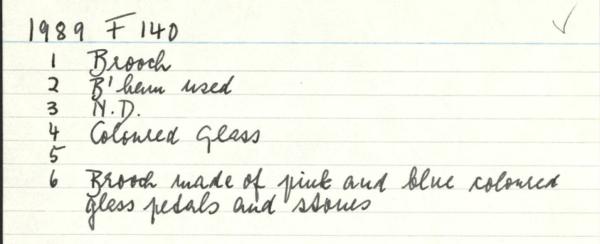 1989 F 140
1 Brooch
2 B'ham used
3 N.D.
4 Coloured glass
5
6 Brooch made of pink and blue coloured
glass petals and stones